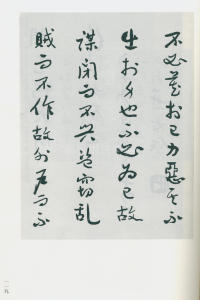 不必藏於己力惡其不
出於身也不必為己故
謀閉而不興盜竊乱
賊而不作故外戶而不